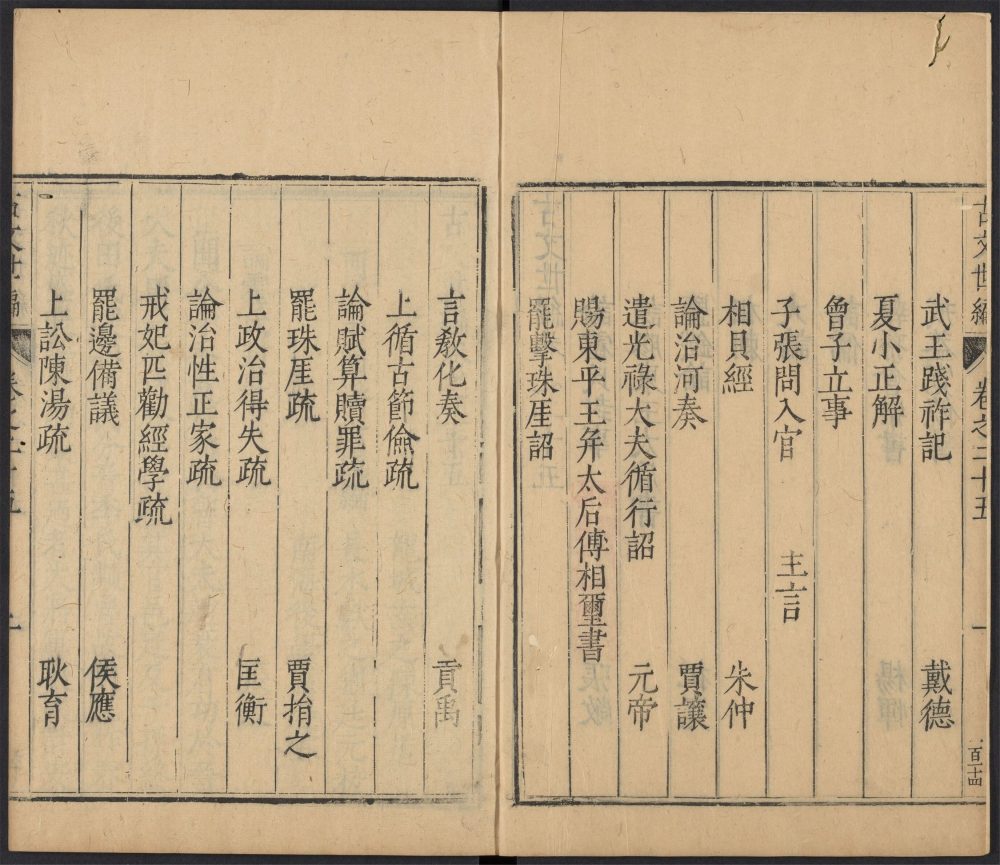 古文世編 卷之二十五 一 一百十四
武王踐祚記 戴德
夏小正解
曾子立事
子張問入官 主言
相貝經 朱仲
論治河奏 賈讓
遣光祿大夫循行詔 元帝
賜東平王并太后傅相璽書
罷擊珠厓詔
言敎化奏 貢禹
上循古節儉疏
論賦算贖罪疏
罷珠厓疏 賈捐之
上政治得失疏 匡衡
論治性正家疏
戒妃匹勸經學疏
罷邊備議 侯應
上訟陳湯疏 耿育